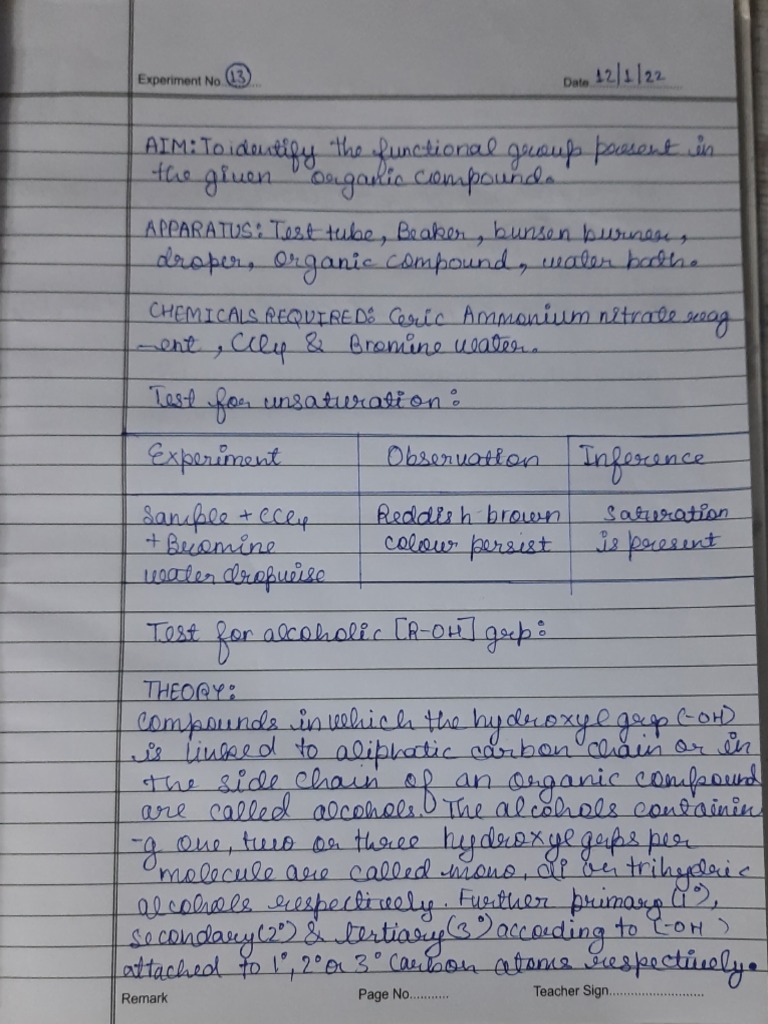 Experiment No. 13
Date 12/1/22
AIM: To identify the functional group present in
the given organic compound.
APPARATUS: Test tube, Beaker, bunsen burner,
droper, organic compound, water bath.
CHEMICALS REQUIRED: Ceric Ammonium nitrate reag
-ent, CCl4 & Bromine water.
Test for unsaturation:
Experiment Observation Inference
Sample + CCl4 Reddish brown Saturation
+ Bromine colour persist is present
water dropwise
Test for alcoholic [R-OH] grp:
THEORY:
Compounds in which the hydroxyl grp (-OH)
is linked to aliphatic carbon chain or in
the side chain of an organic compound
are called alcohols. The alcohols containin
-g one, two or three hydroxyl grps per
molecule are called mono, di or trihydric
alcohols respectively. Further primary (1°),
secondary (2°) & tertiary (3°) according to (-OH)
attached to 1°, 2° or 3° carbon atoms respectively.
Remark Page No........... Teacher Sign..........................